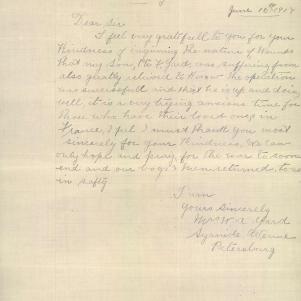 June 10th 1917
Dear Sir
I feel very gratefull to you for your
Kindness of enquiring the nature of Wounds
that my Son, was suffering from
also greatly relieved to Know the operation
was successfull and that he is up and doing
well, it is a very trying anxious time for
those who have their loved ones in
France, I feel I must thank you most
sincerely for your Kindness, We can
only hope and pray, for the war to soon
end and our boys returned, to us
in safty.
I am
Yours Sincerely
Mrs W. A.
Avenue
Petersburg